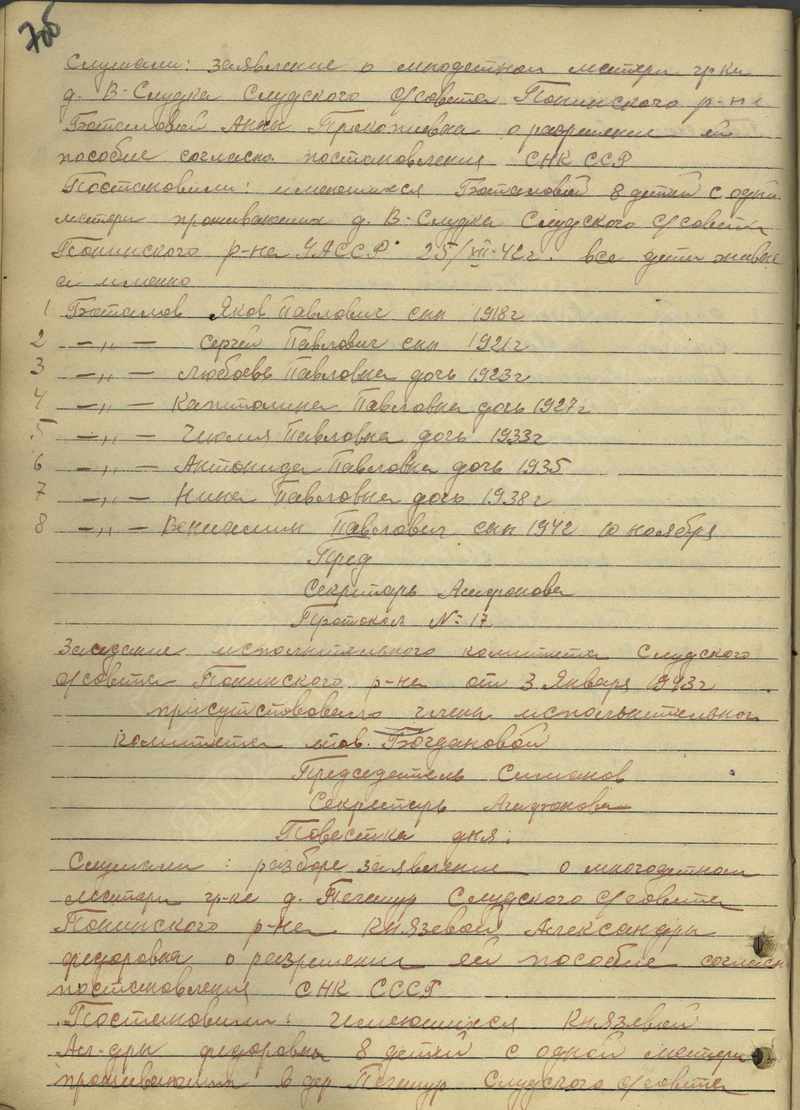 705
Слушали: заявление о многодетной матери гр-ки
д. В-Слудка Слудского с/совета Понинского р-на
Баталовой Анны Прокопьевна о разрешении ей
пособие согласно постановления СНК ССР
Постановили: имеющихся Баталовой 8 детей с одной
матери проживающих д. В-Слудка Слудского с/совета
Понинского р-на УАССР 25/XII-42г. все дети живые
а именно
1 Баталов Яков Павлович сын 1918г
2 —„— Сергей Павлович сын 1921г
3 —„— Любовь Павловна дочь 1923г
4 —„— Капитолина Павловна дочь 1927г
5 —„— Юлия Павловна дочь 1933г
6 —„— Антонида Павловна дочь 1935
7 —„— Нина Павловна дочь 1938г
8 —„— Вениамин Павлович сын 1942 10 ноября
Пред
Секретарь Агафонова
Протокол № 17
Заседание исполнительного комитета Слудского
с/совета Понинского р-на от 3 Января 1943г
присутствовало члены исполнительного
комитета тов. Богдановой
Председатель Симанов
Секретарь Агафонова
Повестка дня:
Слушали: разбор заявление о многодетной
матери гр-ке д. Пегешур Слудского с/совета
Понинского р-на Князевой Александры
Федоровна о разрешении ей пособие согласн
постановления СНК СССР
Постановили: имеющихся Князевой
Ал-дры Федоровны 8 детей с одной матери
проживающих в дер Пегешур Слудского с/совета